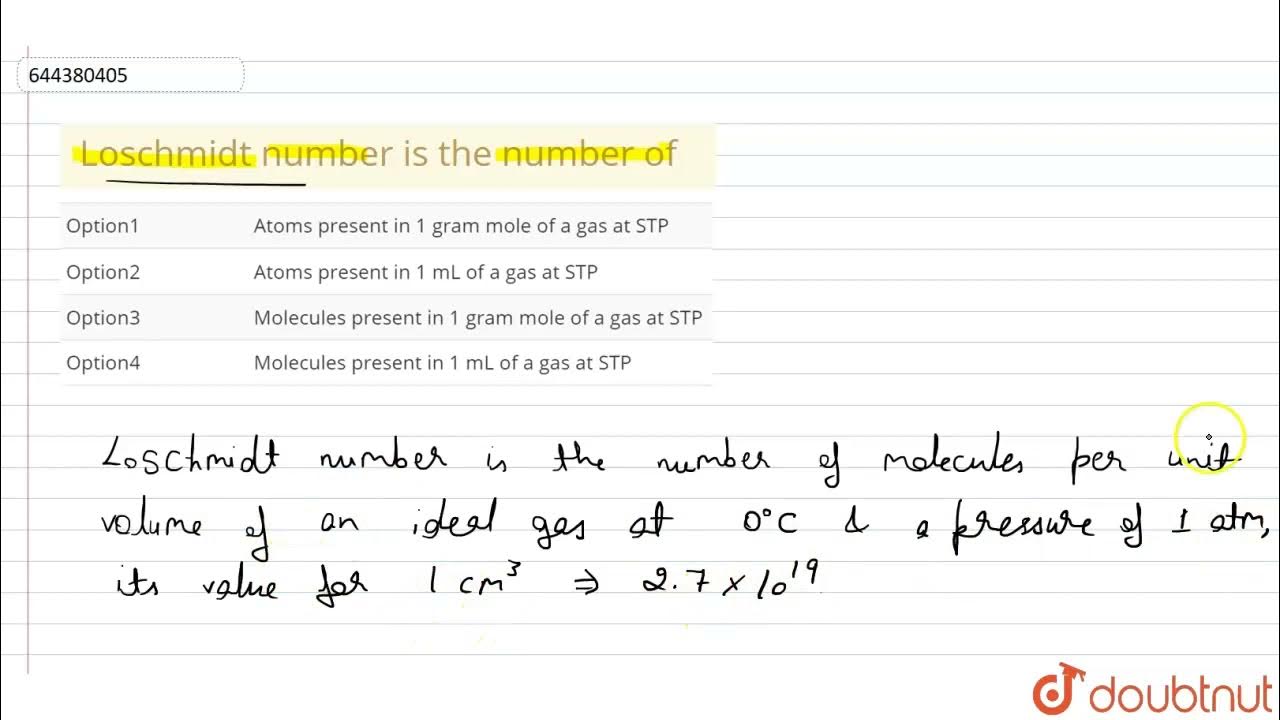 644380405
Loschmidt number is the number of
Option1 Atoms present in 1 gram mole of a gas at STP
Option2 Atoms present in 1 mL of a gas at STP
Option3 Molecules present in 1 gram mole of a gas at STP
Option4 Molecules present in 1 mL of a gas at STP
Loschmidt number is the number of molecules per unit
volume of an ideal gas at 0°C & a pressure of 1 atm,
its value for 1 cm³ ⇒ 2.7 × 10¹⁹
doubtnut